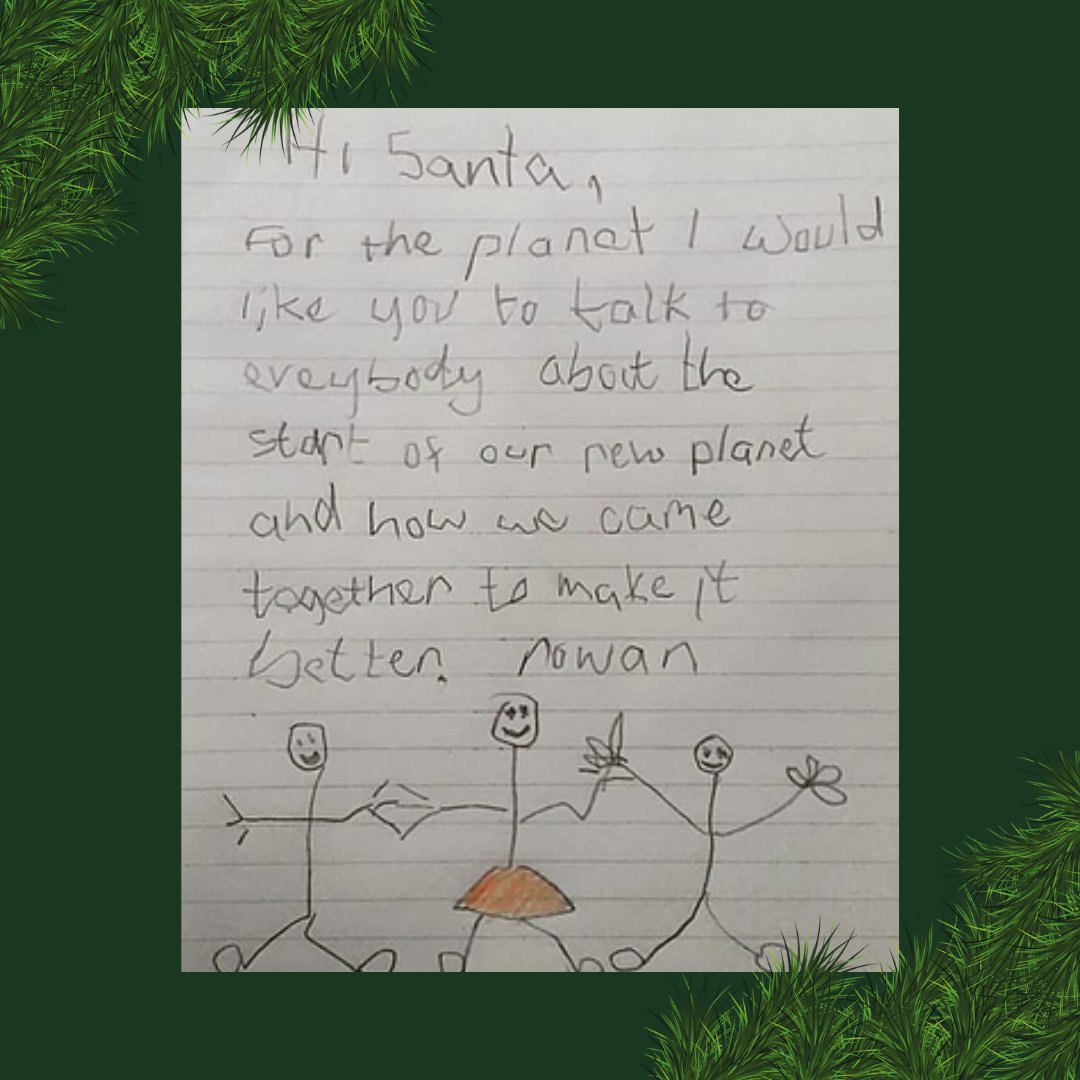 Hi Santa,
For the planet I would
like you to talk to
eveybody about the
start of our new planet
and how we came
together to make it
better. rowan